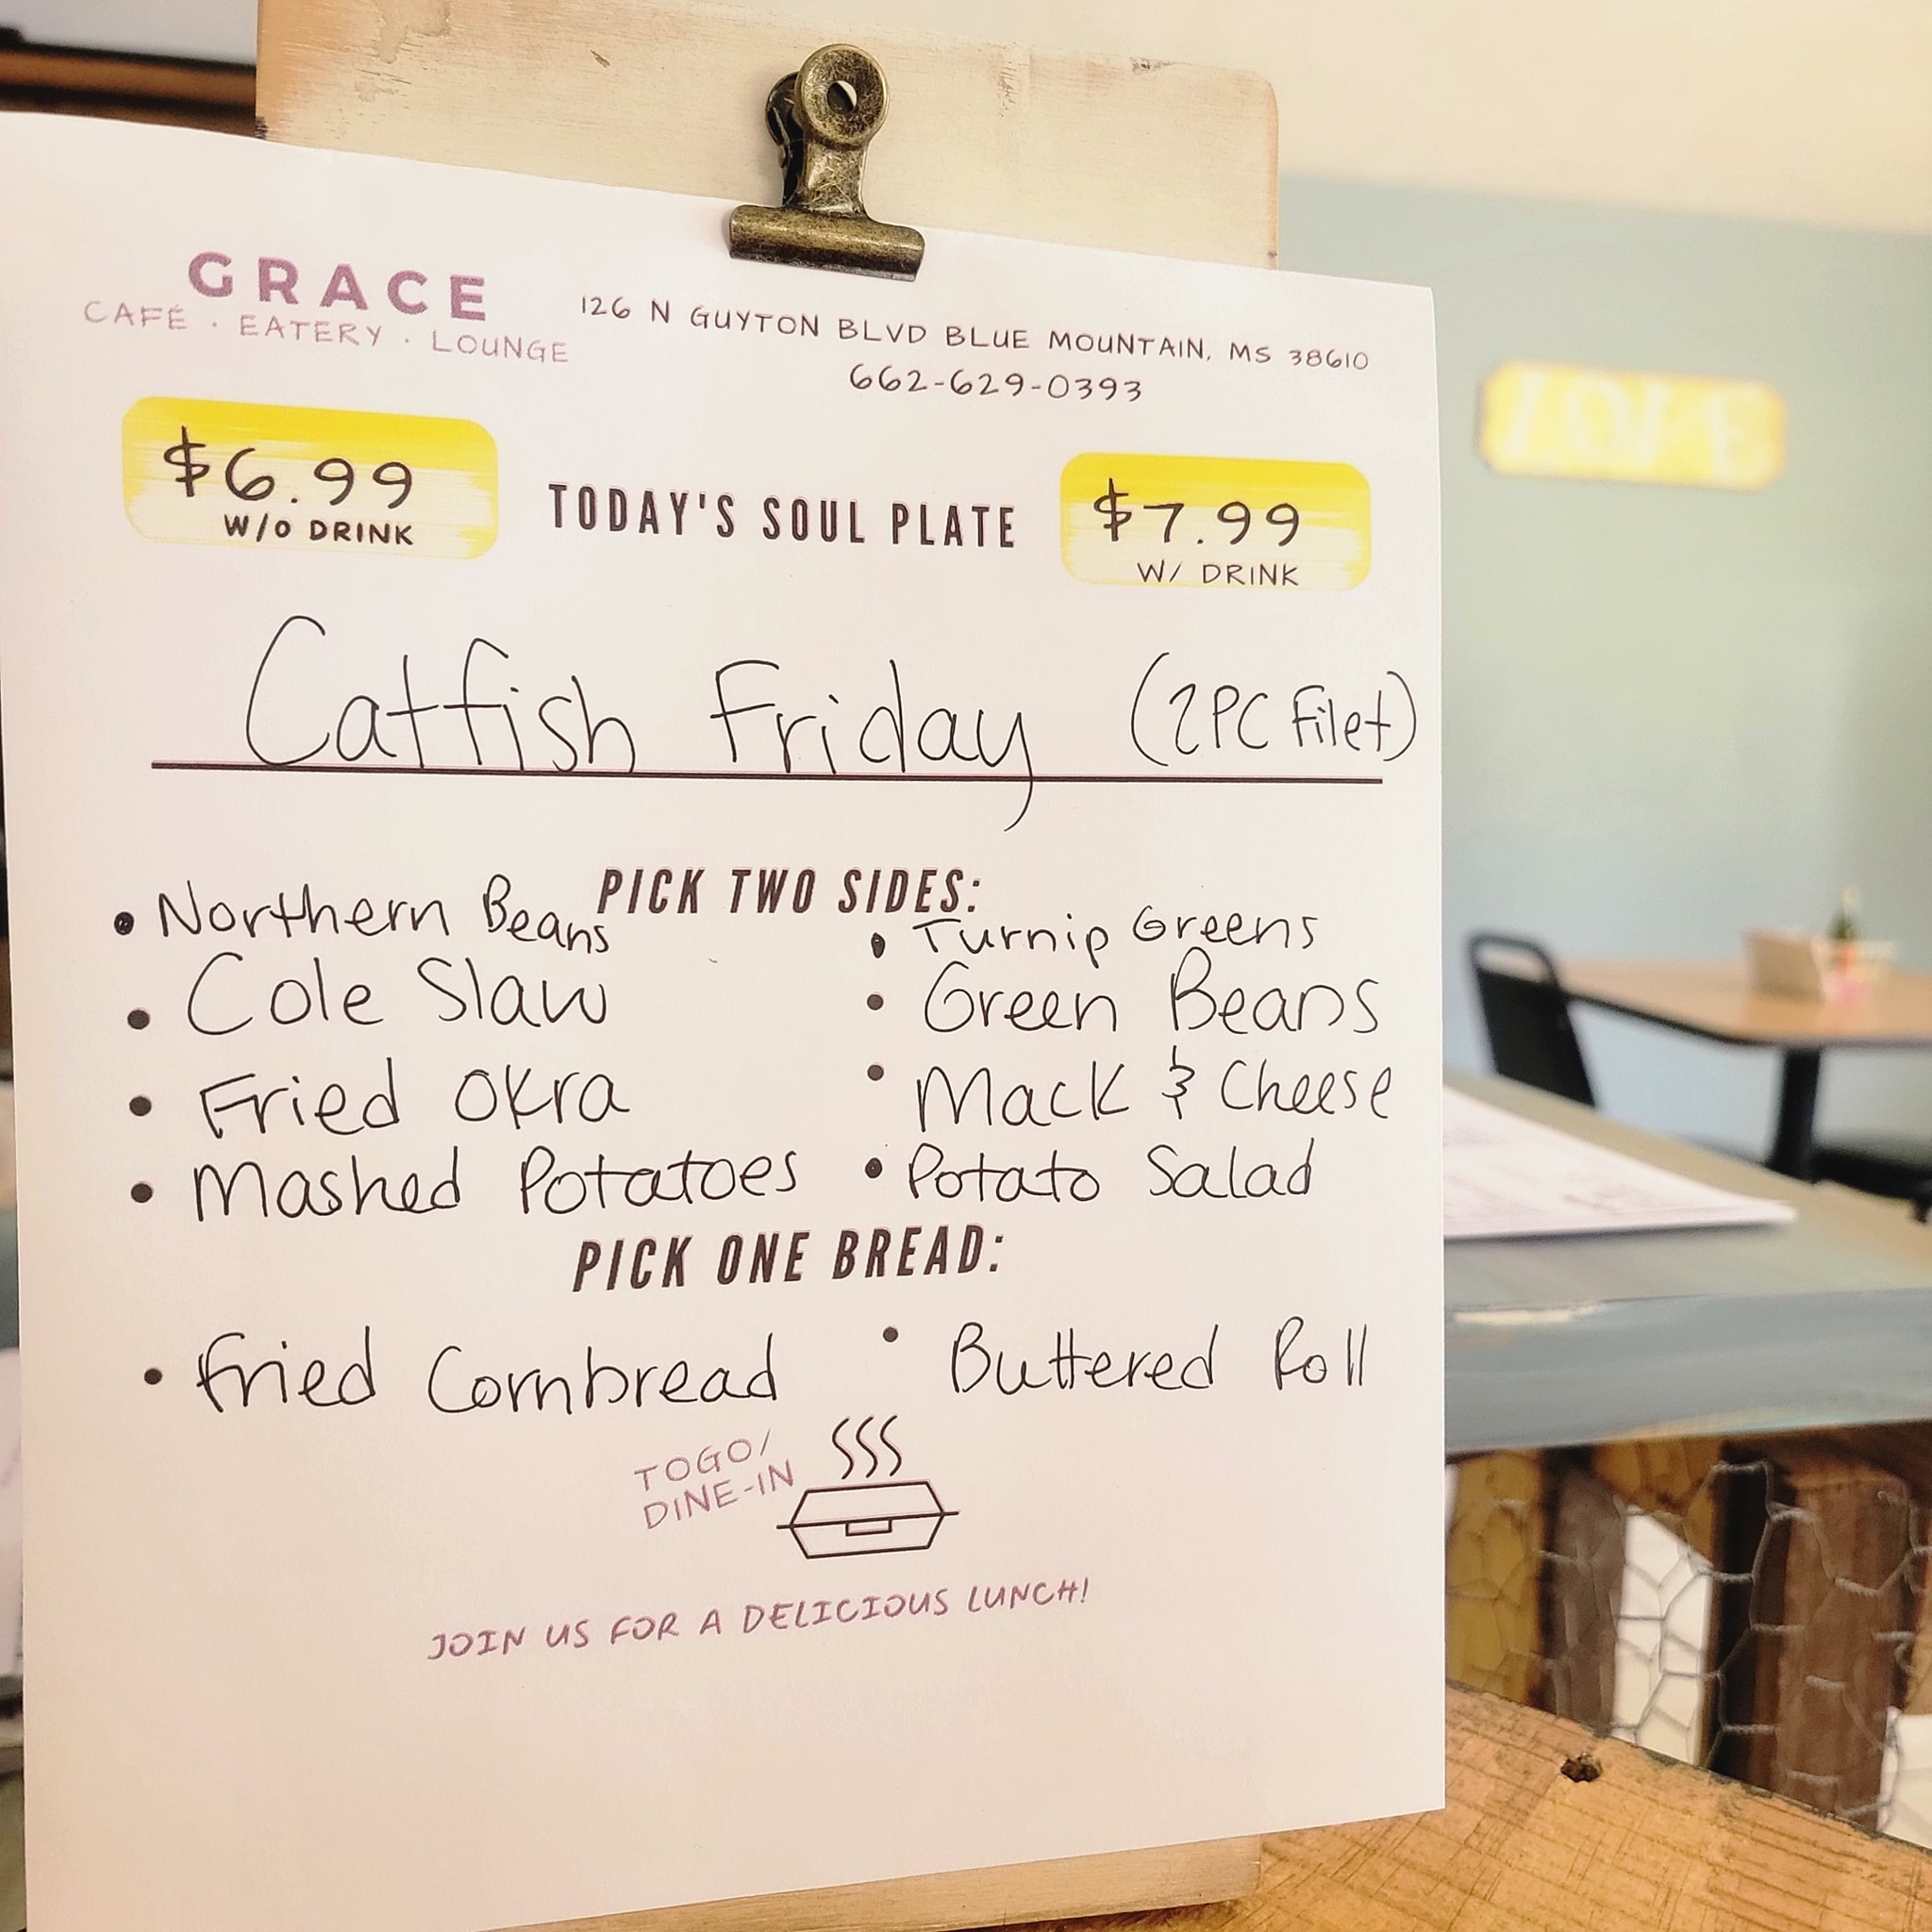 GRACE
CAFÉ · EATERY · LOUNGE
126 N GUYTON BLVD BLUE MOUNTAIN, MS 38610
662-629-0393
$6.99
W/O DRINK
TODAY'S SOUL PLATE
$7.99
W/ DRINK
Catfish Friday (2PC Filet)
PICK TWO SIDES:
• Northern Beans
• Cole Slaw
• Fried Okra
• Mashed Potatoes
• Turnip Greens
• Green Beans
• Mack & Cheese
• Potato Salad
PICK ONE BREAD:
• Fried Cornbread
• Buttered Roll
TOGO/
DINE-IN
JOIN US FOR A DELICIOUS LUNCH!